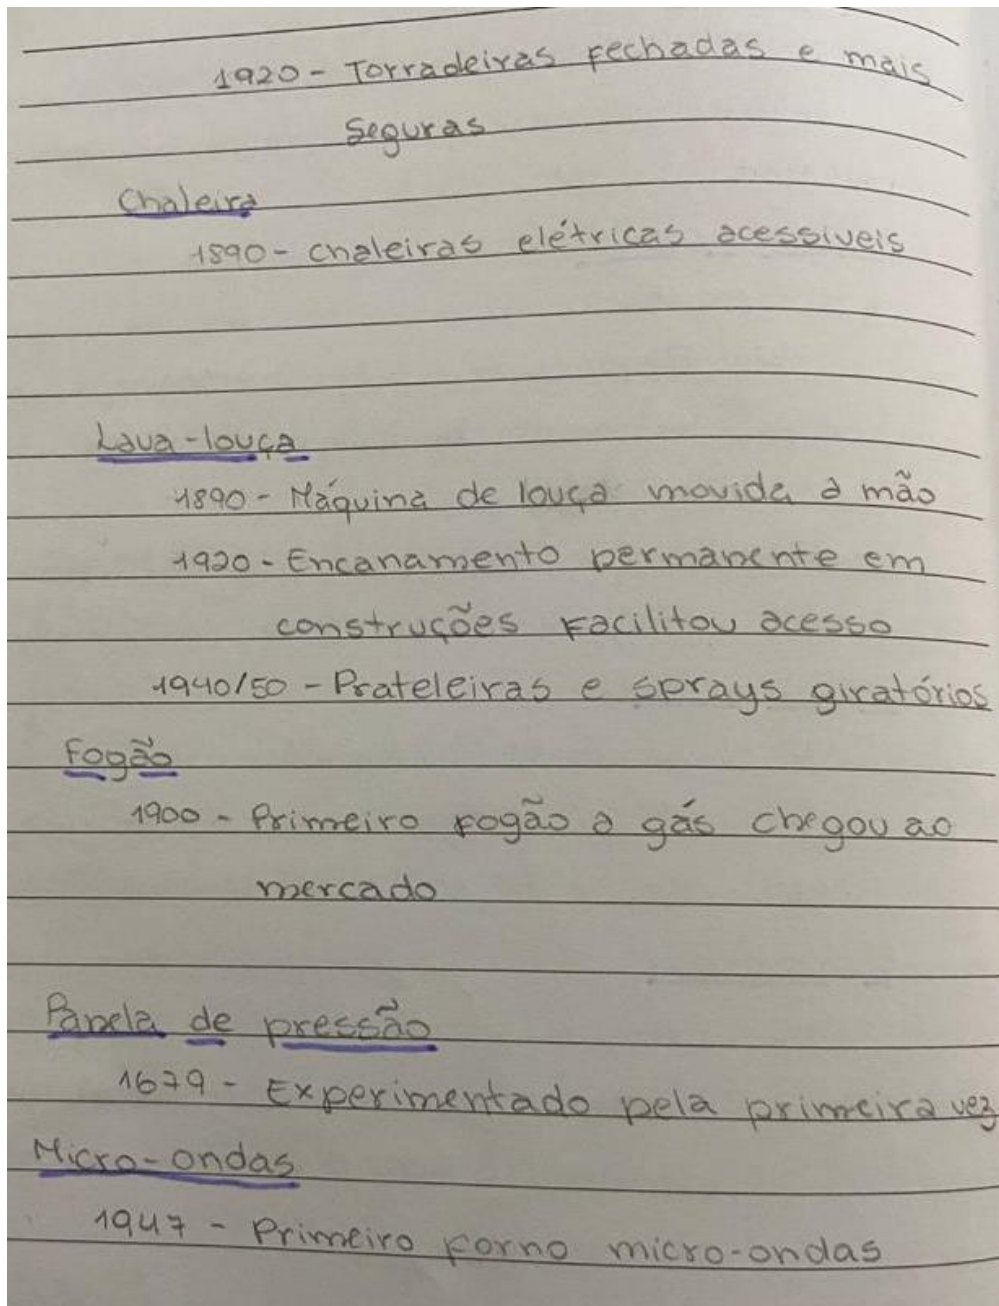 1920 - Torradeiras fechadas e mais
seguras
Chaleira
1890 - chaleiras elétricas acessiveis
Lava-louça
1890 - Máquina de louça movida a mão
1920 - Encanamento permanente em
construções facilitou acesso
1940/50 - Prateleiras e sprays giratórios
Fogão
1900 - Primeiro fogão a gás chegou ao
mercado
Panela de pressão
1679 - Experimentado pela primeira vez
Micro-ondas
1947 - Primeiro forno micro-ondas